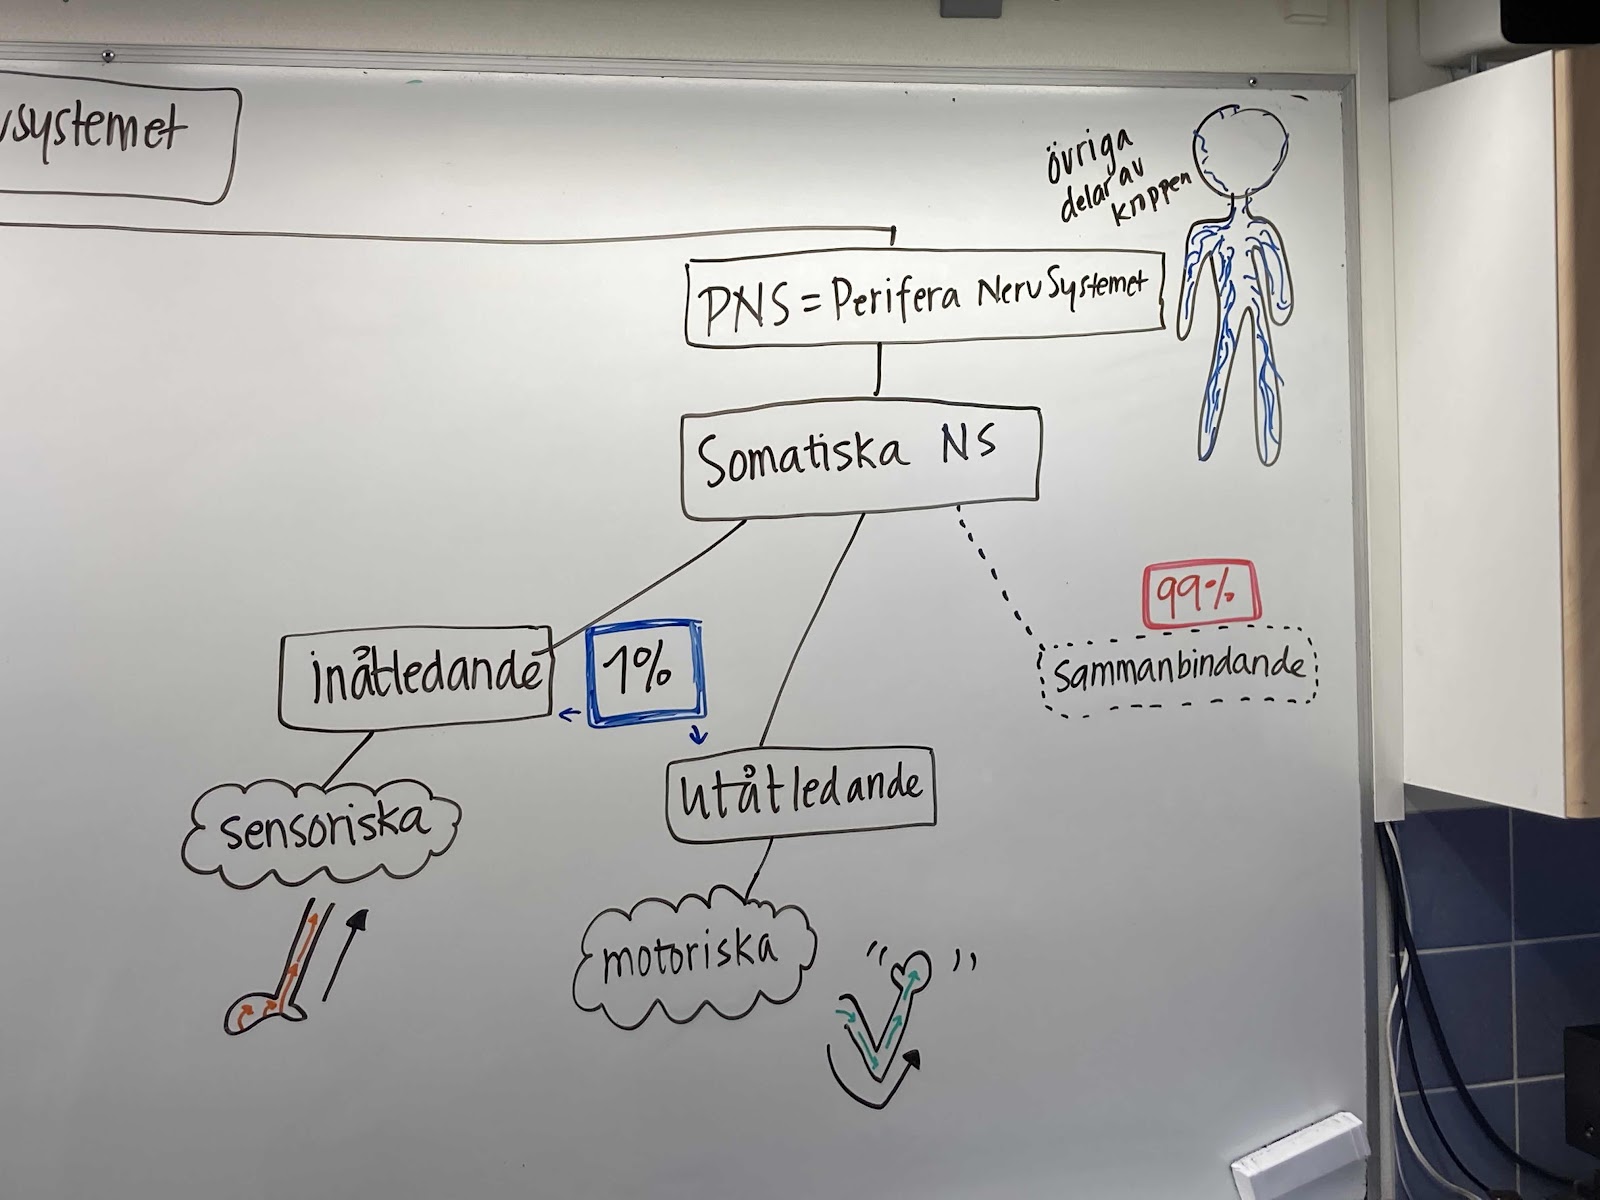 vsystemet
övriga
delar av
kroppen
PNS = Perifera NervSystemet
Somatiska NS
99%
sammanbindande
inåtledande
1%
utåtledande
sensoriska
motoriska